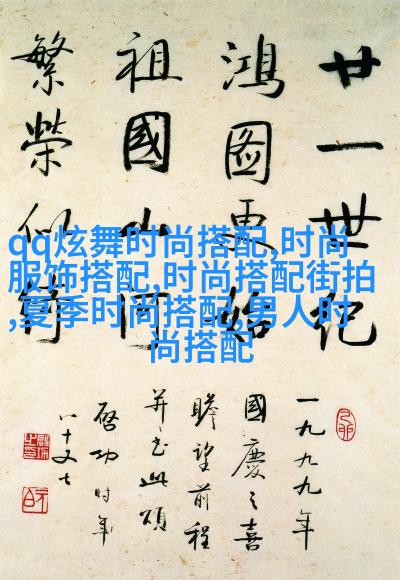 qq炫舞时尚搭配,时尚
服饰搭配,时尚搭配街拍
,夏季时尚搭配,男人时
尚搭配
廿一世紀
鴻圖更始
祖國山
繁榮似
一九九九年
國慶之喜
瞻望前程
并書此頌
啓功時年
八十又七